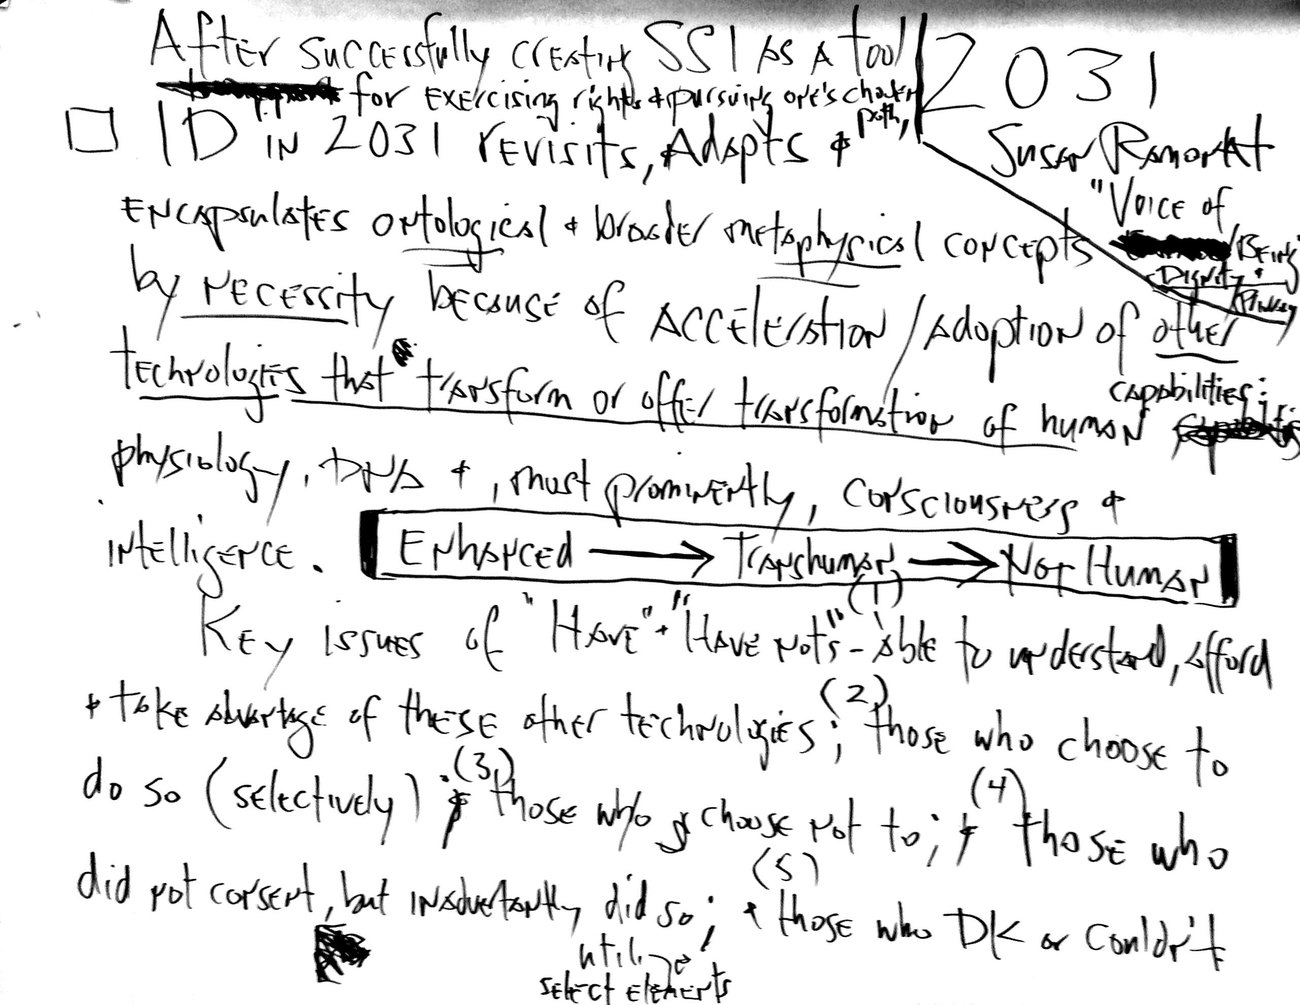 After successfully creating SSI as a tool
for exercising rights & pursuing one's chosen
path,
2031
Susan Ramonat
"Voice of
Being"
Dignity &
□ ID in 2031 revisits, Adapts &
encapsulates ontological & broader metaphysical concepts
by necessity because of acceleration / adoption of other
technologies that transform or offer transformation of human
capabilities:
physiology, DNA &, most prominently, consciousness &
intelligence.
Enhanced → Transhuman → Not Human
Key issues of "Have" + "Have nots" - (1) Able to understand, afford
+ take advantage of these other technologies; (2) those who choose to
do so (selectively); (3) those who choose not to; & (4) those who
did not consent, but inadvertantly did so; & (5) those who DK or couldn't
utilize
select elements